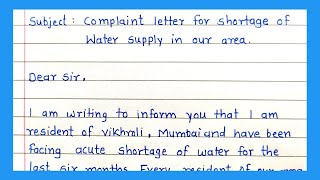 Subject : Complaint letter for shortage of
Water supply in our area.
Dear Sir,
I am writing to inform you that I am
resident of vikhroli, Mumbai and have been
facing acute shortage of water for the
last six months. Every resident of our area